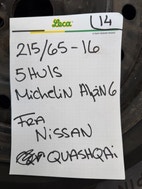 Leca
14
215/65-16
5 HULS
Michelin Alpin 6
FRA
NISSAN
QUASHQAi